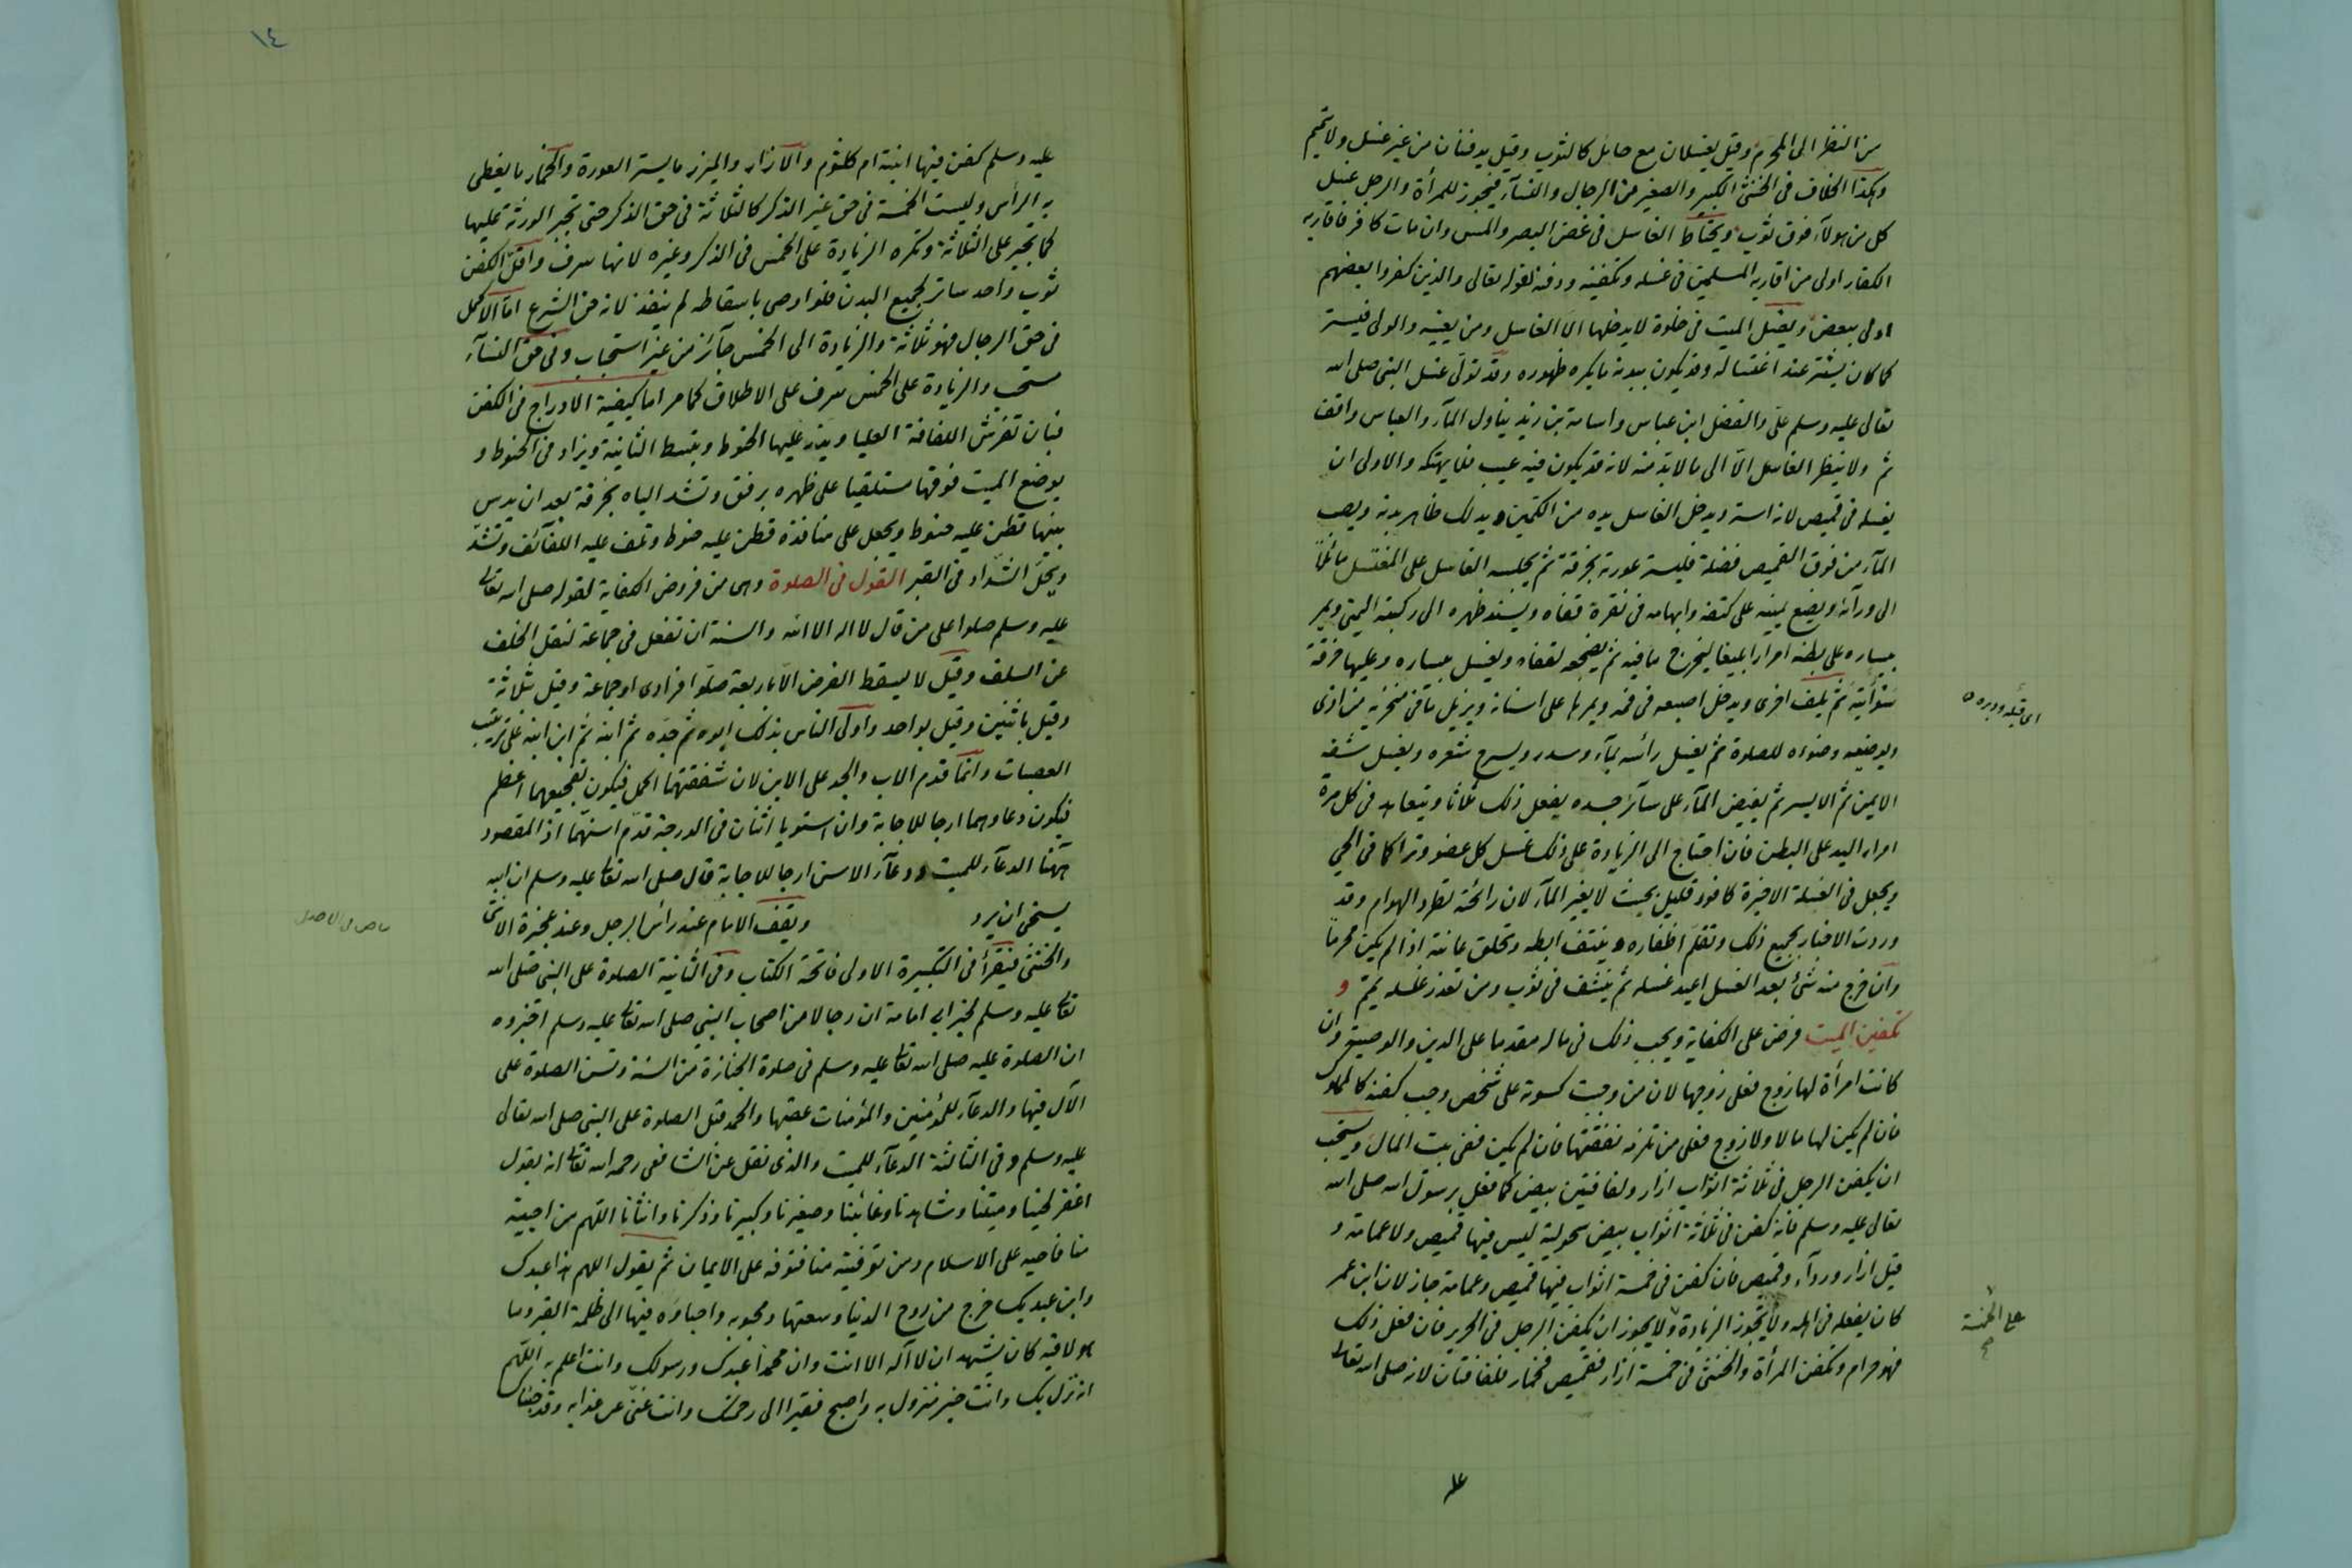 من النظر الى المحرم وقيل يغسلان مع حائل كالثوب وقيل يدفنان من غير غسل ولا تيمم
وهكذا الخلاف فى الخنثى الكبير والصغير من الرجال والنسآء فيجوز للمرأة والرجل غسل
كل من هولآء فوق ثوب ويحتاط الغاسل فى غض البصر والمس وان مات كافر فاقاربه
الكفار اولى من اقاربه المسلمين فى غسله وتكفينه ودفنه لقوله تعالى والذين كفروا بعضهم
اولى ببعض ويغسل الميت فى خلوة لا يدخلها الا الغاسل ومن يعينه والولى فيستر
كما كان يستتر عند اغتساله وقد يكون ببدنه ما يكره ظهوره وقد تولى غسل النبى صلى الله
تعالى عليه وسلم على والفضل ابن عباس واسامة بن زيد يناول المآء والعباس واقف
ثم ولا ينظر الغاسل الا الى ما لا بد منه لانه قد يكون فيه عيب فلا يهتكه والاولى ان
يغسله فى قميص لانه استر ويدخل الغاسل يده من الكمين ويدلك ظاهر بدنه ويصب
المآء من فوق القميص فضلة فليستر عورته بخرقة ثم يجلسه الغاسل على المغتسل مائلا
الى ورآئه ويضع يمينه على كتفه وابهامه فى نقرة قفاه ويسند ظهره الى ركبته اليمنى ويمر
بيساره على بطنه امرارا بليغا ليخرج ما فيه ثم يضجعه لقفاه ويغسل بيساره وعليها خرقة
سوأتيه ثم يلف اخرى ويدخل اصبعه فى فمه ويمرها على اسنانه ويزيل ما فى منخريه من اذى
اى قبله ودبره
ويوضيه وضوءه للصلوة ثم يغسل رأسه بمآء وسدر ويسرح شعره ويغسل شقه
الايمن ثم الايسر ثم يفيض المآء على سآئر جسده يفعل ذلك ثلاثا ويتعاهد فى كل مرة
امرار اليد على البطن فان احتاج الى الزيادة على ذلك غسل كل عضو وترا كما فى الحى
ويجعل فى الغسلة الاخيرة كافور قليل بحيث لا يغير المآء لان رائحته تطرد الهوام وقد
وردت الاخبار بجميع ذلك وتقلم اظفاره وينتف ابطه وتحلق عانته اذا لم يكن محرما
وان خرج منه شئ بعد الغسل اعيد غسله ثم ينشف فى ثوب ومن تعذر غسله يمم و
تكفين الميت فرض على الكفاية ويجب ذلك فى ماله مقدما على الدين والوصية وان
كانت امرأة لها زوج فعلى زوجها لان من وجبت كسوته على شخص وجب كفنه كالمملوك
فان لم يكن لها مالا ولا زوج فعلى من تلزمه نفقتها فان لم يكن ففى بيت المال ويستحب
ان يكفن الرجل فى ثلاثة اثواب ازار ولفافتين بيض كما فعل برسول الله صلى الله
تعالى عليه وسلم فانه كفن فى ثلاثة اثواب بيض سحولية ليس فيها قميص ولا عمامة و
قيل ازار وردآء وقميص فان كفن فى خمسة اثواب فيها قميص وعمامة جاز لان ابن عمر
كان يفعله فى اهله ولا تجوز الزيادة ولا يجوز ان يكفن الرجل فى الحرير فان فعل ذلك
على الخمسة صح
فهو حرام وتكفن المرأة والخنثى فى خمسة ازار فقميص فخمار فلفافتان لانه صلى الله تعالى
١٤
عليه وسلم كفن فيها ابنته ام كلثوم والازار والميزر ما يستر العورة والخمار ما يغطى
به الرأس وليست الخمسة فى حق غير الذكر كالثلاثة فى حق الذكر حتى تجبر الورثة عليها
كما تجبر على الثلاثة وتكره الزيادة على الخمس فى الذكر وغيره لانها سرف واقل الكفن
ثوب واحد ساتر لجميع البدن فلو اوصى باسقاطه لم ينفذ لانه حق الشرع اما الاكمل
فى حق الرجال فهو ثلاثة والزيادة الى الخمس جآئز من غير استحباب وفى حق النسآء
مستحب والزيادة على الخمس سرف على الاطلاق كما مر اما كيفية الادراج فى الكفن
فبان تفرش اللفافة العليا ويذر عليها الحنوط وتبسط الثانية ويزاد فى الحنوط و
يوضع الميت فوقها مستلقيا على ظهره برفق وتشد الياه بخرقة بعد ان يدس
بينها قطن عليه حنوط ويجعل على منافذه قطن عليه حنوط وتلف عليه اللفآئف وتشد
ويحل الشداد فى القبر القول فى الصلوة وهى من فروض الكفاية لقوله صلى الله تعالى
عليه وسلم صلوا على من قال لا اله الا الله والسنة ان تفعل فى جماعة لنقل الخلف
عن السلف وقيل لا يسقط الفرض الا باربعة صلوا فرادى او جماعة وقيل بثلاثة
وقيل باثنين وقيل بواحد واولى الناس بذلك ابوه ثم جده ثم ابنه ثم ابن ابنه على ترتيب
العصبات وانما قدم الاب والجد على الابن لان شفقتهما اكمل فيكون تفجيعهما اعظم
فيكون دعاوهما ارجا للاجابة وان استويا اثنان فى الدرجة قدم اسنهما اذ المقصود
ههنا الدعآء للميت ودعآء الاسن ارجا للاجابة قال صلى الله تعالى عليه وسلم ان الله
يستحى ان يرد ويقف الامام عند رأس الرجل وعند عجيزة الانثى
والخنثى فيقرأ فى التكبيرة الاولى فاتحة الكتاب وفى الثانية الصلوة على النبى صلى الله
تعالى عليه وسلم لخبر ابى امامة ان رجالا من اصحاب النبى صلى الله تعالى عليه وسلم اخبروه
ان الصلوة عليه صلى الله تعالى عليه وسلم فى صلوة الجنازة من السنة وتسن الصلوة على
الآل فيها والدعآء للمؤمنين والمؤمنات عقبها والحمد قبل الصلوة على النبى صلى الله تعالى
عليه وسلم وفى الثالثة الدعآء للميت والذى نقل عن الشافعى رحمه الله تعالى انه يقول
اغفر لحينا وميتنا وشاهدنا وغائبنا وصغيرنا وكبيرنا وذكرنا وانثانا اللهم من احييته
منا فاحيه على الاسلام ومن توفيته منا فتوفه على الايمان ثم يقول اللهم هذا عبدك
وابن عبديك خرج من روح الدنيا وسعتها ومحبوبه واحباؤه فيها الى ظلمة القبر وما
هو لاقيه كان يشهد ان لا آله الا انت وان محمدا عبدك ورسولك وانت اعلم به اللهم
انه نزل بك وانت خير منزول به واصبح فقيرا الى رحمتك وانت غنى عن عذابه وقد جئناك